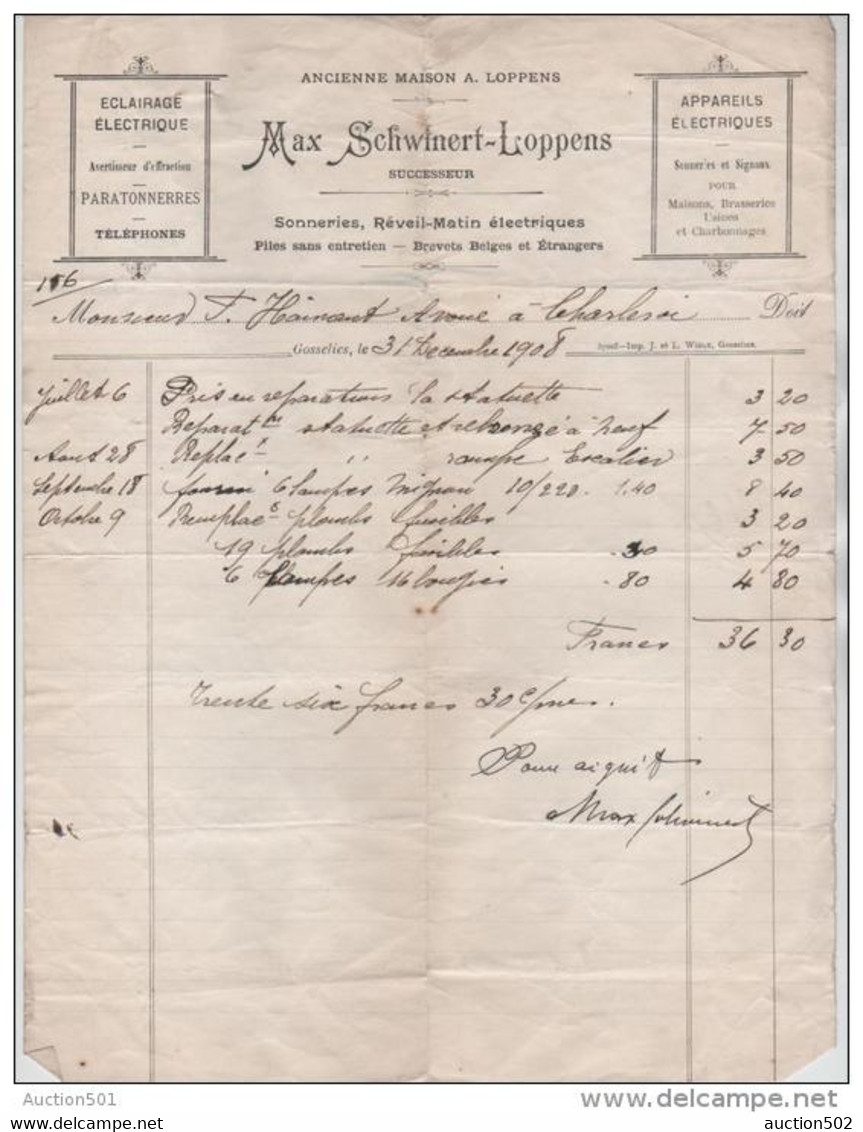 ANCIENNE MAISON A. LOPPENS
Max Schwinert-Loppens
SUCCESSEUR
Sonneries, Réveil-Matin électriques
Piles sans entretien — Brevets Belges et Étrangers
ECLAIRAGE
ÉLECTRIQUE
Avertisseur d'effraction
PARATONNERRES
TÉLÉPHONES
APPAREILS
ÉLECTRIQUES
Sonneries et Signaux
POUR
Maisons, Brasseries
Usines
et Charbonnages
Monsieur F. Hainaut Avoué à Charleroi Doit
Gosselies, le 31 Decembre 1908
Imp. J. et L. Gosselies.
Juillet 6 Pris en reparations la statuette 3 20
Reparat on statuette et à neuf 7 50
Aout 28 Replact " rampe Escalier 3 50
Septembre 18 fourni 6 lampes Mignon 10/220. 1.40 8 40
Octobre 9 Remplac plombs fusibles 3 20
19 plombs fusibles .30 5 70
6 lampes 16 bougies .80 4 80
Francs 36 30
Trente six francs 30 c/mes.
Pour aiquit
Max Schwinert
Auction501
delcampe.net
auction502